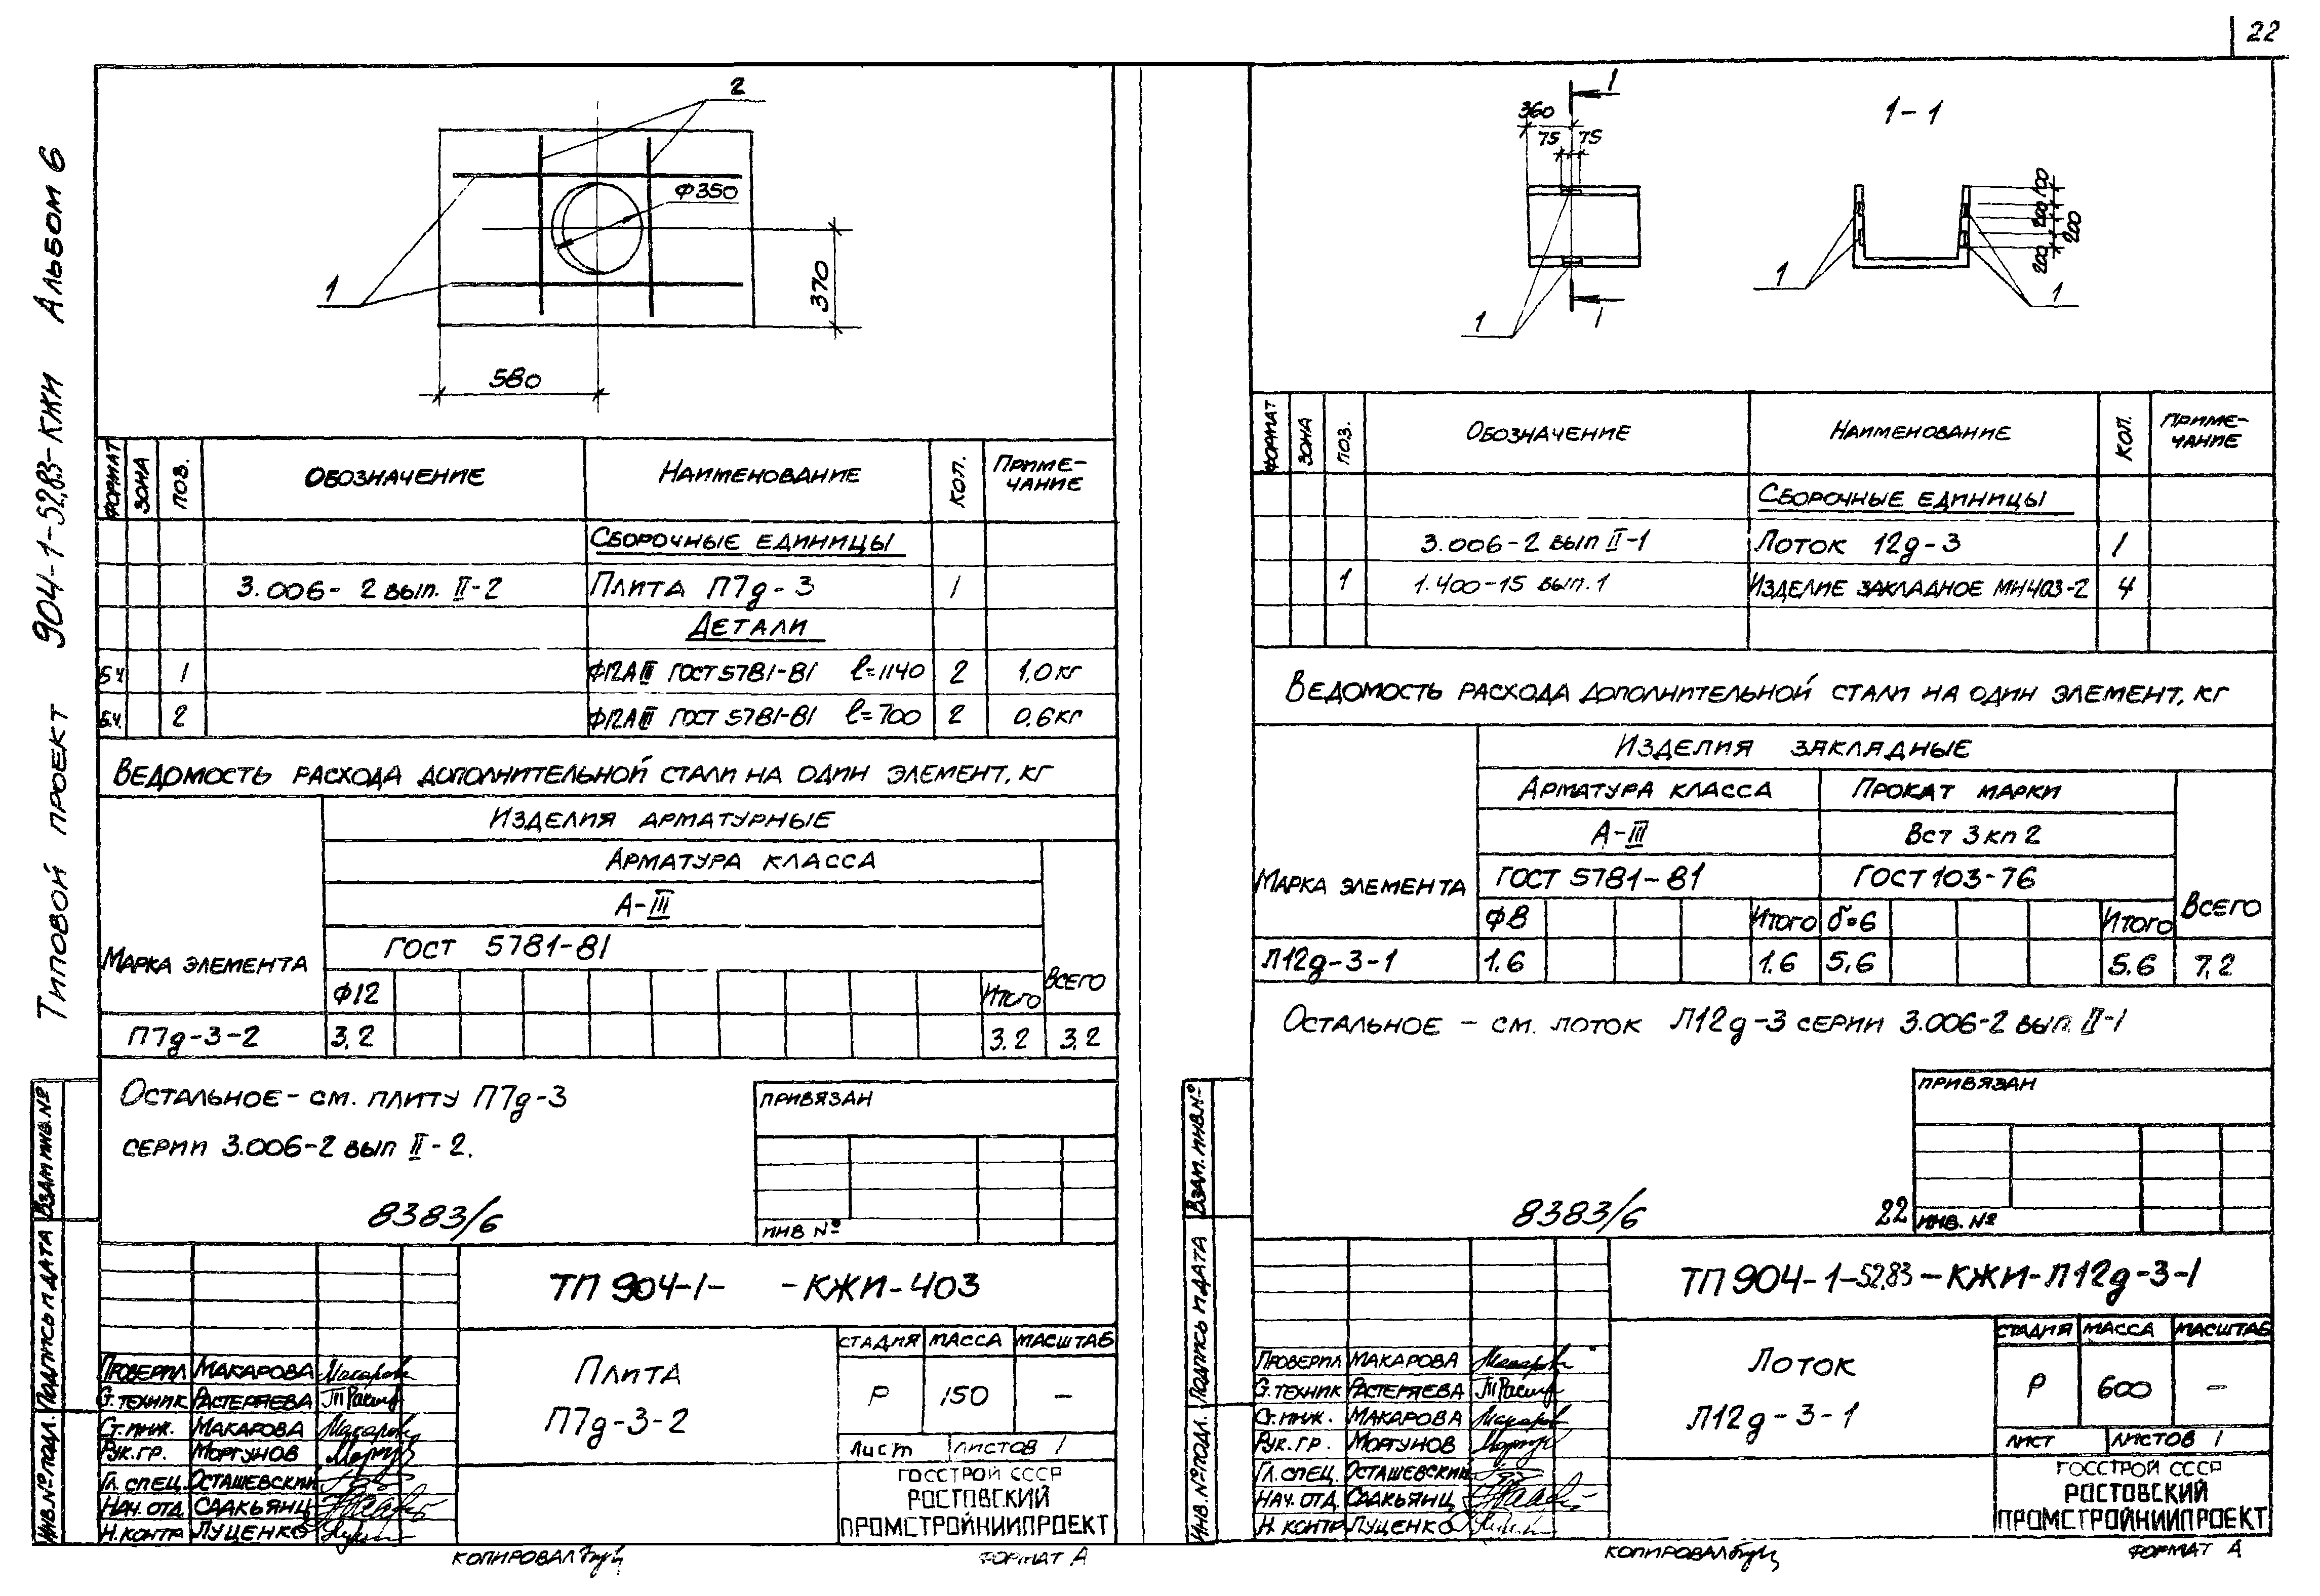 22
Типовой проект 904-1-52.83-КЖИ Альбом 6
2
Ф350
1
370
580
Формат
Зона
Поз.
Обозначение
Наименование
Кол.
Приме-
чание
Сборочные единицы
3.006-2 вып. II-2 Плита П7д-3 1
Детали
Б.ч. 1 Ф12АIII ГОСТ 5781-81 l=1140 2 1,0 кг
Б.ч. 2 Ф12АIII ГОСТ 5781-81 l=700 2 0,6 кг
Ведомость расхода дополнительной стали на один элемент, кг
Изделия арматурные
Арматура класса
А-III
ГОСТ 5781-81
Марка элемента
Ф12 Итого Всего
П7д-3-2 3,2 3,2 3,2
Остальное - см. плиту П7д-3
серии 3.006-2 вып II-2.
8383/6
Привязан
Инв №
Взам инв. №
Подпись и дата
Инв. № подл.
ТП 904-1- -КЖИ-403
Плита
П7д-3-2
Стадия Масса Масштаб
Р 150 -
Лист Листов 1
Госстрой СССР
Ростовский
Промстройниипроект
Проверил Макарова
Ст. техник Растеряева
Ст. инж. Макарова
Рук. гр. Моргунов
Гл. спец. Осташевский
Нач. отд. Саакьянц
Н. контр Луценко
Копировал
Формат А
1
360
75 75
1
1
1-1
100
200
200
200
1
1
Формат
Зона
Поз.
Обозначение
Наименование
Кол.
Приме-
чание
Сборочные единицы
3.006-2 вып II-1 Лоток 12д-3 1
1 1.400-15 вып. 1 Изделие закладное МН403-2 4
Ведомость расхода дополнительной стали на один элемент, кг
Изделия закладные
Арматура класса Прокат марки
А-III Вст 3 кп 2
ГОСТ 5781-81 ГОСТ 103-76
Марка элемента
Ф8 Итого δ=6 Итого Всего
Л12д-3-1 1,6 1,6 5,6 5,6 7,2
Остальное - см. лоток Л12д-3 серии 3.006-2 вып. II-1
8383/6 22
Привязан
Инв. №
Взам. инв. №
Подпись и дата
Инв. № подл.
ТП 904-1-52.83-КЖИ-Л12д-3-1
Лоток
Л12д-3-1
Стадия Масса Масштаб
Р 600 -
Лист Листов 1
Госстрой СССР
Ростовский
Промстройниипроект
Проверил Макарова
Ст. техник Растеряева
Ст. инж. Макарова
Рук. гр. Моргунов
Гл. спец. Осташевский
Нач. отд. Саакьянц
Н. контр Луценко
Копировал
Формат А